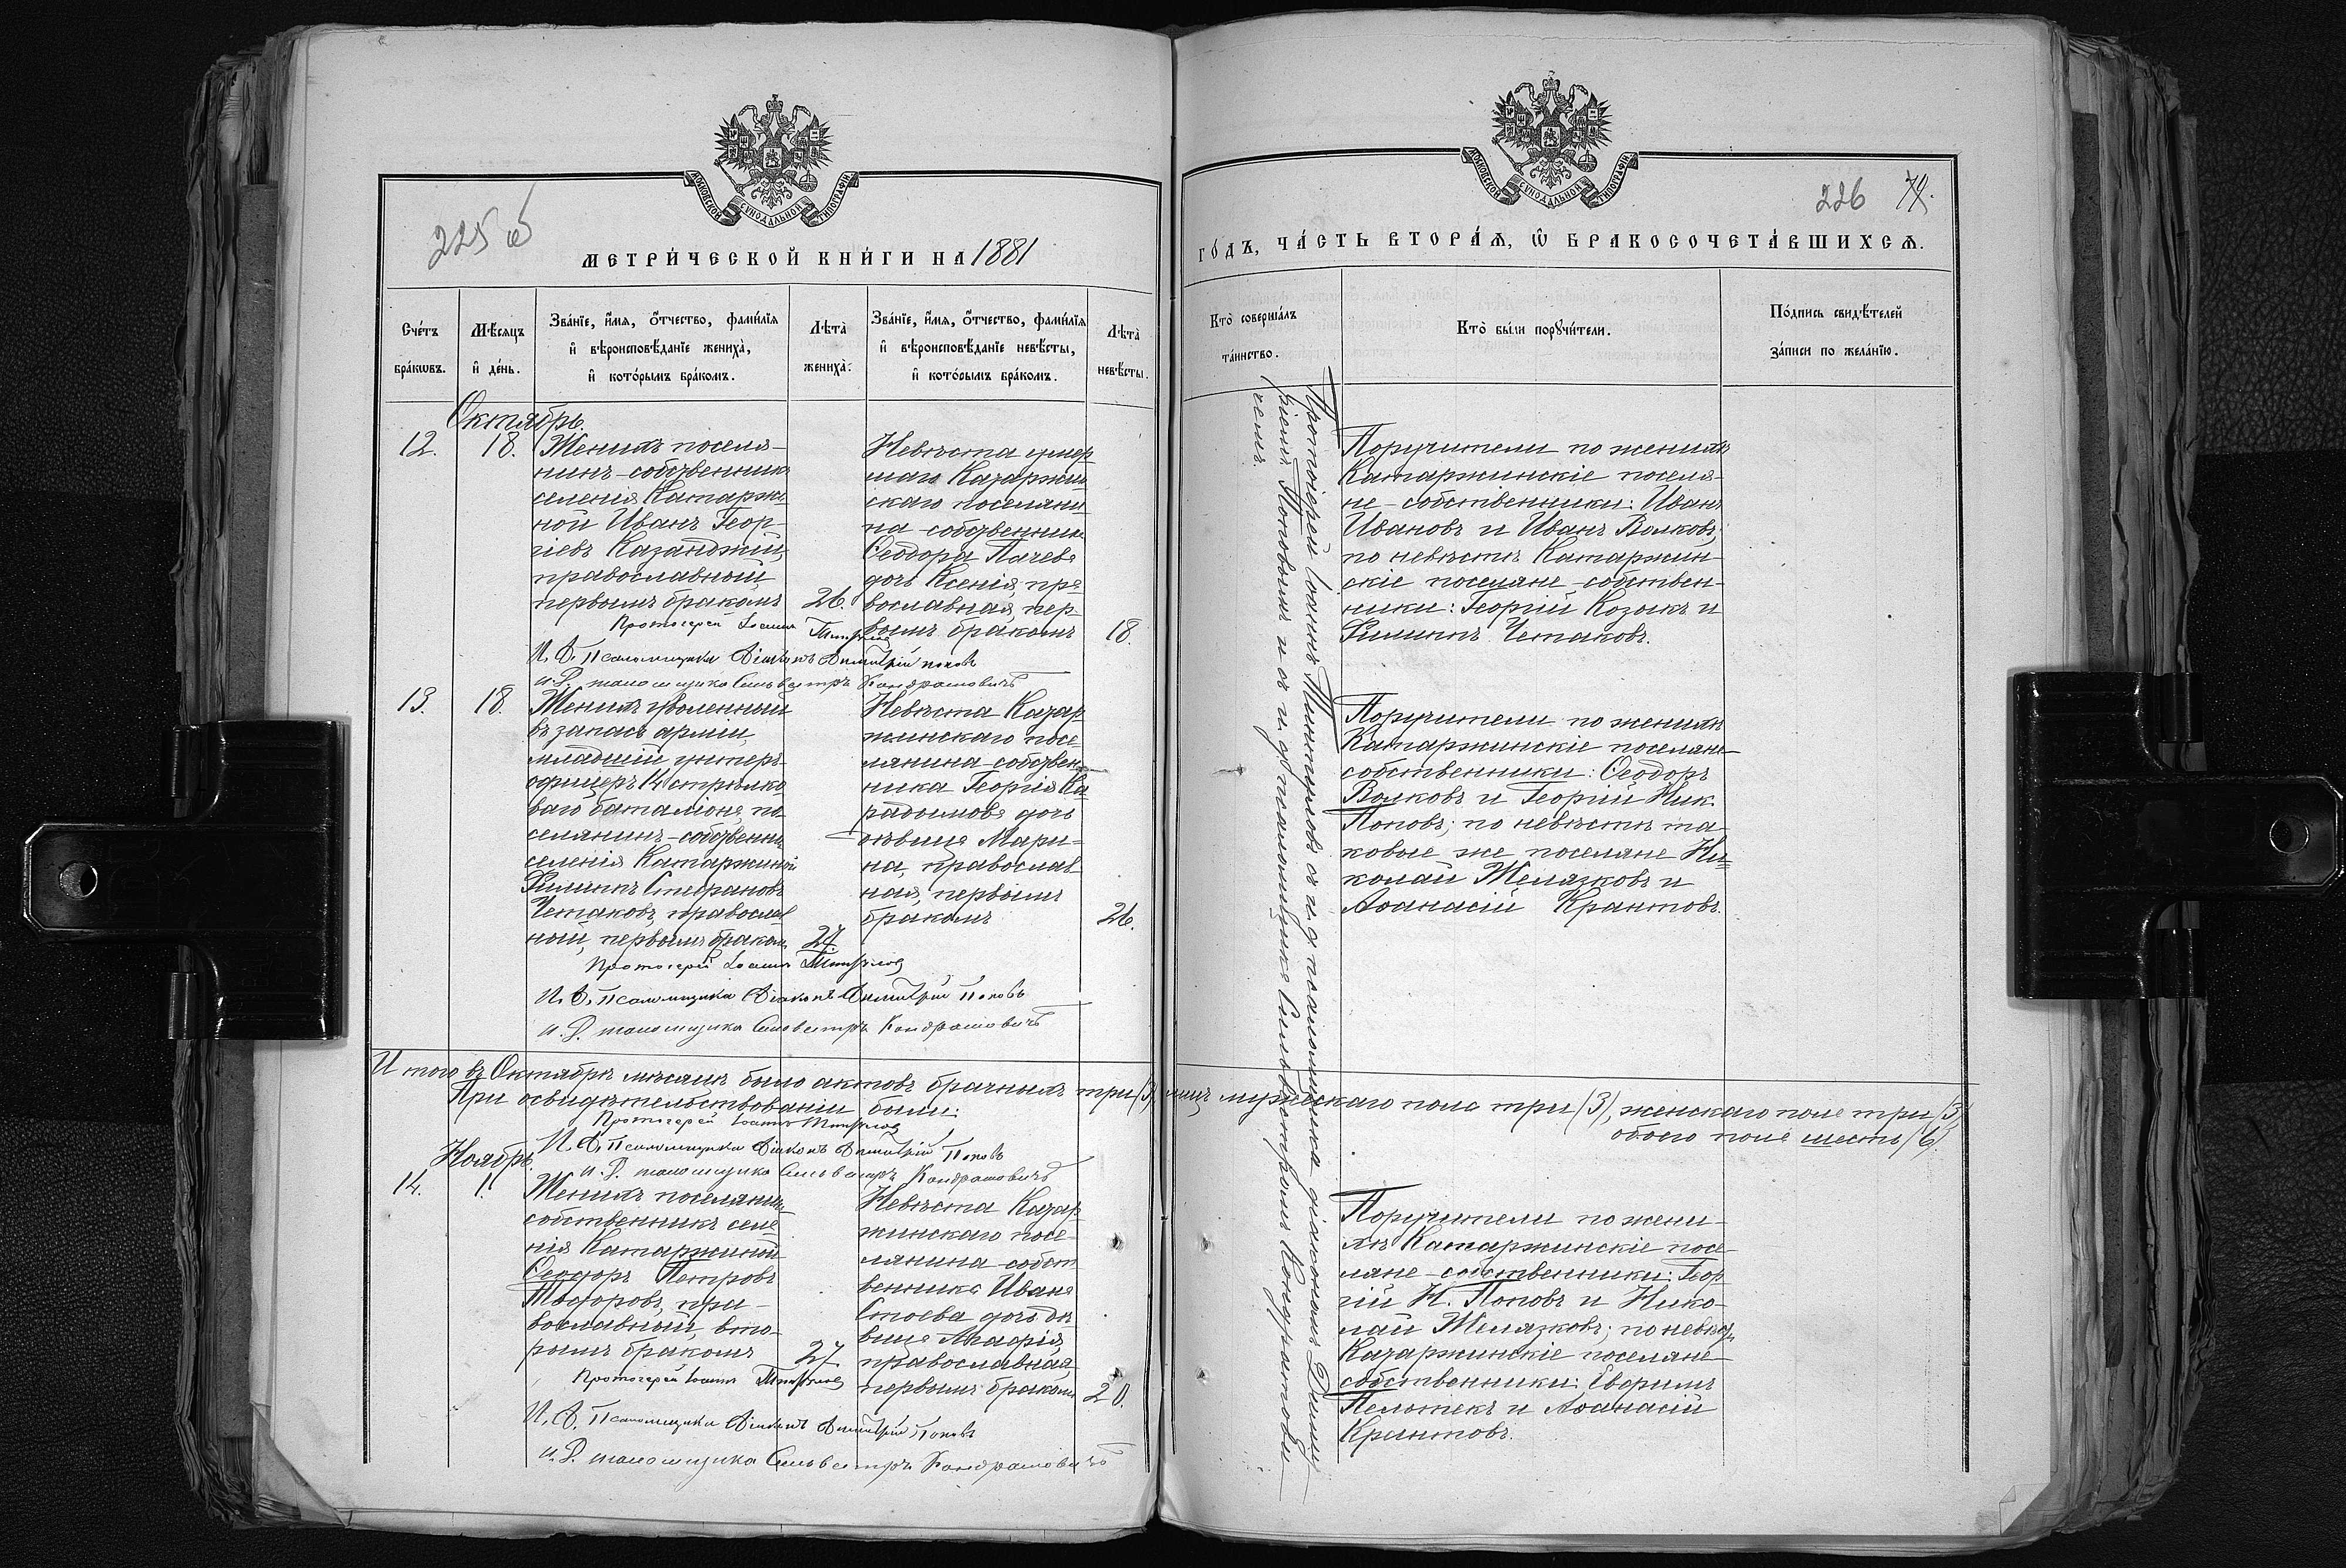 МОСКОВСКОЙ СѴНОДАЛЬНОЙ ТИПОГРАФІИ
225 об
МЕТРИ́ЧЕСКОЙ КНИ́ГИ НА 1881
Сче́тъ бра́кωвъ.
Мѣ́сяцъ и҆ де́нь.
Зва́нїе, и҆́мя, ѻ҆́тчество, фами́лїя
и҆ вѣроисповѣ́данїе жениха̀,
и҆ кото́рымъ бра́комъ.
Лѣта̀ жениха̀.
Зва́нїе, и҆́мя, ѻ҆́тчество, фами́лїя
и҆ вѣроисповѣ́данїе невѣ́сты,
и҆ кото́рымъ бра́комъ.
Лѣта̀ невѣ́сты.
Октябрь.
12.
18.
Женихъ поселя-
нинъ-собственникъ
селенія Катаржи
ной Иванъ Геор-
гіевъ Казанджій,
православный
первымъ бракомъ
26.
Невѣста умер
шаго Катаржин
скаго поселяни
на-собственника
Ѳеодора Пачева
дочь Ксенія, пра
вославная, пер-
вымъ бракомъ
18.
Протоіерей Іоаннъ
И. Д. Псаломщика Діаконъ Димитрій Поповъ
и. д. псаломщика Сильвестръ Кондратовичъ
13.
18.
Женихъ уволенный
въ запасъ арміи,
младшій унтеръ-
офицеръ 14 стрѣлко
ваго баталіона, по
селянинъ-собственникъ
селенія Катаржиной
Филиппъ Стефановъ
Четаковъ, православ
ный, первымъ бракомъ
27.
Невѣста Катар
жинскаго посе-
лянина-собствен
ника Георгія Ка
радимова дочь
дѣвица Мари-
на, православ
ная, первымъ
бракомъ
26.
Протоіерей Іоаннъ
И. Д. Псаломщика Діаконъ Димитрій Поповъ
и. д. псаломщика Сильвестръ Кондратовичъ
Итого въ Октябрѣ мѣсяцѣ было актовъ брачныхъ три (3),
При освидѣтельствованіи были:
Протоіерей Іоаннъ
И. Д. Псаломщика Діаконъ Димитрій Поповъ
и. д. псаломщика Сильвестръ Кондратовичъ
Ноябрь.
14.
1.
Женихъ поселянинъ
собственникъ селе
нія Катаржиной
Ѳеодоръ Петровъ
Тодоровъ, пра-
вославный, вто-
рымъ бракомъ
27
Невѣста Катар
жинскаго посе-
лянина-собст
венника Ивана
Стоева дочь дѣ
вица Марія,
православная
первымъ бракомъ
20.
Протоіерей Іоаннъ
И. Д. Псаломщика Діаконъ Димитрій Поповъ
и. д. псаломщика Сильвестръ Кондратовичъ
МОСКОВСКОЙ СѴНОДАЛЬНОЙ ТИПОГРАФІИ
226
ГО́ДЪ, ЧА́СТЬ ВТОРА́Я, Ѽ БРАКОСОЧЕТА́ВШИХСЯ.
Кто̀ соверша́лъ та́инство.
Кто̀ бы́ли порꙋчи́тели.
По́дпись свидѣ́телей
за́писи по жела́нїю.
Протоіерей Іоаннъ съ и. д. псаломщика діакономъ Димит-
ріемъ Поповымъ и съ и. д. псаломщика Сильвестромъ Кондратови-
чемъ.
Поручители по женихѣ
Катаржинскіе поселя-
не-собственники: Иванъ
Ивановъ и Иванъ Волковъ;
по невѣстѣ Катаржин-
скіе поселяне-собствен-
ники: Георгій Козыкъ и
Филиппъ Четаковъ.
Поручители по женихѣ
Катаржинскіе поселяне-
собственники: Ѳеодоръ
Волковъ и Георгій Ник.
Поповъ; по невѣстѣ та-
ковые же поселяне Ни-
колай Желязковъ и
Аѳанасій Крантовъ.
лицъ мужескаго пола три (3), женскаго пола три (3)
обоего пола шесть (6).
Поручители по жени-
хѣ Катаржинскіе посе-
ляне-собственники: Геор
гій Н. Поповъ и Нико-
лай Желязковъ; по невѣстѣ
Катаржинскіе поселяне
собственники: Евфимъ
Пельтекъ и Аѳанасій
Крантовъ.